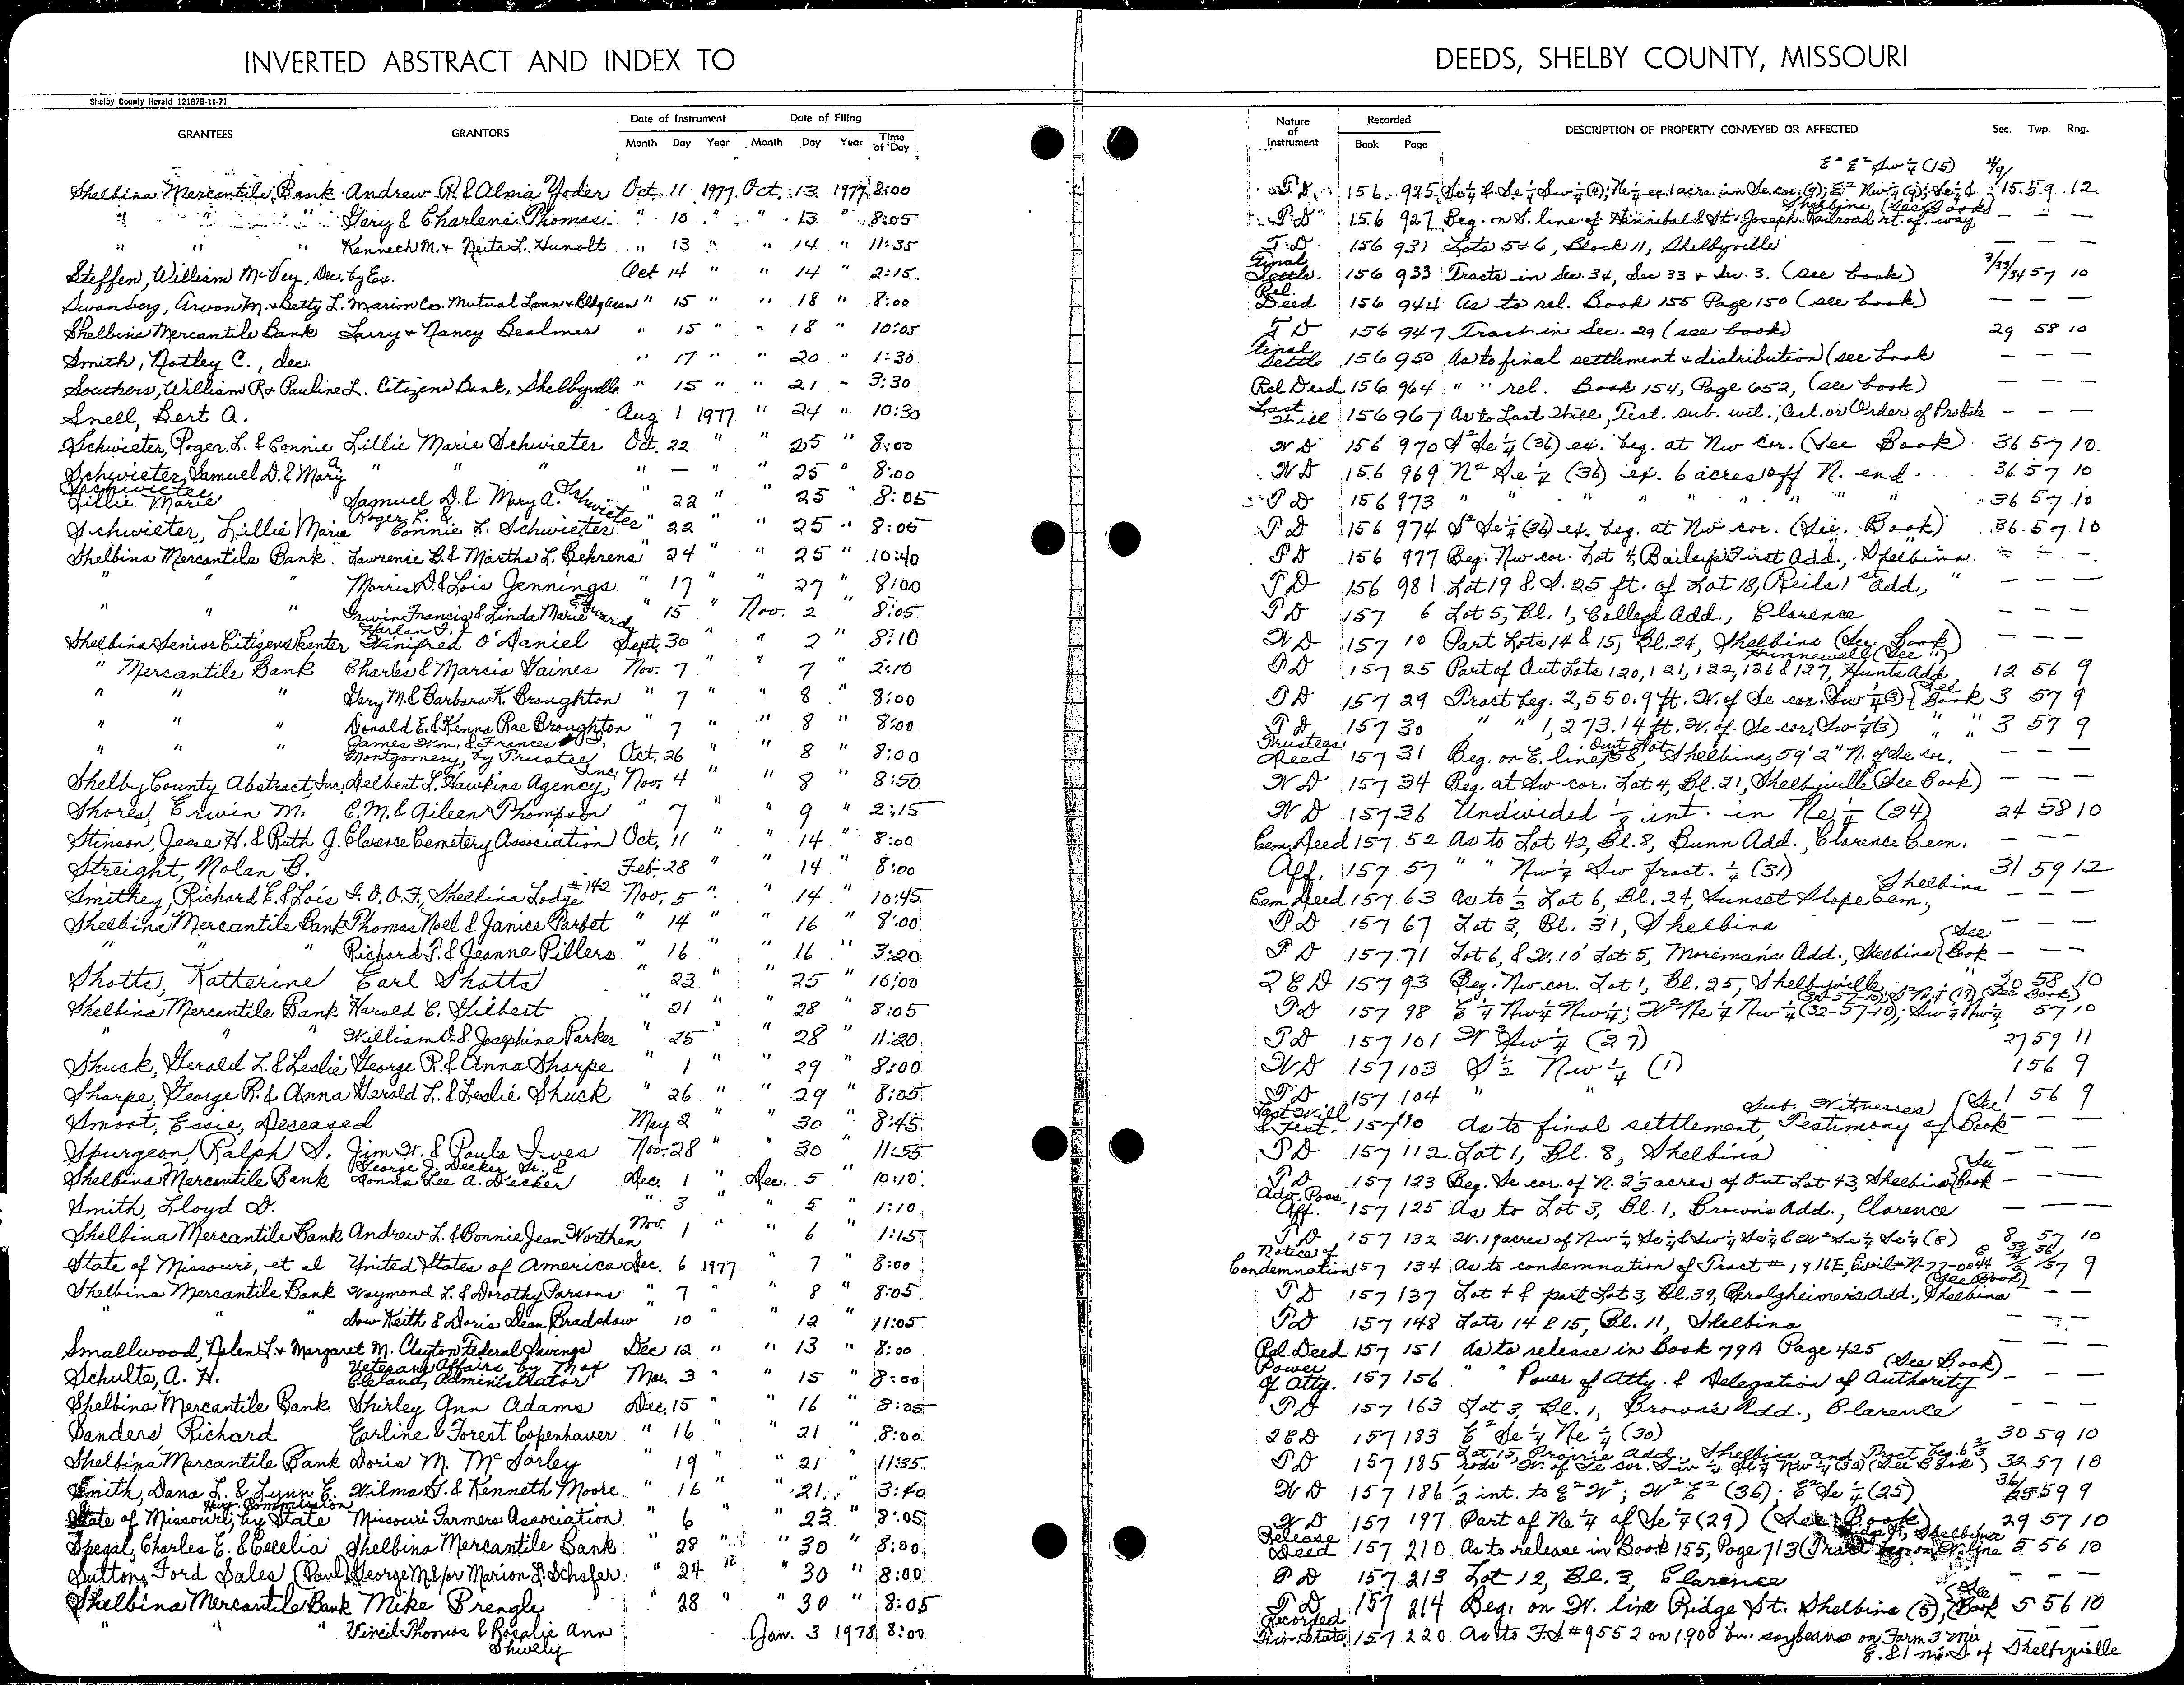 INVERTED ABSTRACT AND INDEX TO DEEDS, SHELBY COUNTY, MISSOURI
Shelby County Herald 12187B-11-71
GRANTEES GRANTORS Date of Instrument Month Day Year Date of Filing Month Day Year Time of Day Nature of Instrument Recorded Book Page DESCRIPTION OF PROPERTY CONVEYED OR AFFECTED Sec. Twp. Rng.
Shelbina Mercantile Bank Andrew R. & Alma Yoder Oct. 11 1977 Oct. 13 1977 8:00 T D 156 925 15 59 12
" " " Gary & Charlene Thomas " 10 " " 13 " 8:05 T D 156 927 Beg. on S. line of Hannibal & St. Joseph Railroad rt. of way, Shelbina (See Book) — — —
" " " Kenneth M. & Neita L. Hunolt " 13 " " 14 " 11:35 T D 156 931 Lots 5 & 6, Block 11, Shelbyville — — —
Steffen, William McVey, Dec. by Ex. Oct 14 " " 14 " 2:15 Final Settle. 156 933 Tracts in Sec. 34, Sec 33 & Sec. 3. (see book) 3/33/34 57 10
Swanberg, Arvon M. & Betty L. Marion Co. Mutual Loan & Bldg Assn " 15 " " 18 " 8:00 Rel. Deed 156 944 As to rel. Book 155 Page 150 (see book) — — —
Shelbina Mercantile Bank Larry & Nancy Bealmer " 15 " " 18 " 10:05 T D 156 947 Tract in Sec. 29 (see book) 29 58 10
Smith, Notley C., dec. " 17 " " 20 " 1:30 Final Settle 156 950 As to final settlement & distribution (see book — — —
Southers, William R & Pauline L. Citizens Bank, Shelbyville " 15 " " 21 " 3:30 Rel Deed 156 964 " " rel. Book 154, Page 652, (see book) — — —
Snell, Bert A. Aug 1 1977 " 24 " 10:30 Last Will 156 967 As to Last Will, Test. sub. wit., Cert. or Order of Probate — — —
Schwieter, Roger L. & Connie Lillie Marie Schwieter Oct. 22 " " 25 " 8:00 W D 156 970 S² Se ¼ (36) ex. beg. at Nw cor. (See Book) 36 57 10
Schwieter, Samuel D. & Mary A " " " " — " " 25 " 8:00 W D 156 969 N² Se ¼ (36) ex. 6 acres off N. end. 36 57 10
Schwieter Lillie Marie Samuel D. & Mary A. Schwieter " 22 " " 25 " 8:05 T D 156 973 " " " " " " " 36 57 10
Schwieter, Lillie Marie Roger L. & Connie L. Schwieter " 22 " " 25 " 8:05 T D 156 974 S² Se ¼ (36) ex. beg. at Nw cor. (See Book) 36 57 10
Shelbina Mercantile Bank Lawrence B. & Martha L. Behrens " 24 " " 25 " 10:40 T D 156 977 Beg. Nw cor. Lot 4, Bailey's First Add., Shelbina — — —
" " " Morris D. & Lois Jennings " 17 " " 27 " 8:00 T D 156 981 Lot 19 & S. 25 ft. of Lot 18, Reids 1st Add., " — — —
" " " Irwin Francis & Linda Marie " 15 " Nov. 2 " 8:05 T D 157 6 Lot 5, Bl. 1, College Add., Clarence — — —
Shelbina Senior Citizens Center Harlan F. & Winifred O'Daniel Sept. 30 " " 2 " 8:10 W D 157 10 Part Lots 14 & 15, Bl. 24, Shelbina (See Book) — — —
" Mercantile Bank Charles & Marcia Gaines Nov. 7 " " 7 " 2:10 T D 157 25 Part of Out Lots 120, 121, 122, 126 & 127, Hunts Add, 12 56 9
" " " Gary M. & Barbara K. Broughton " 7 " " 8 " 8:00 T D 157 29 Tract beg. 2,550.9 ft. W. of Se cor. Sw ¼ (3) (See Book 3 57 9
" " " Donald E. & Kenna Rae Broughton " 7 " " 8 " 8:00 T D 157 30 " " 1,273.14 ft. W. of Se cor. Sw ¼ (3) " " 3 57 9
" " " James Wm. & Frances Montgomery, by Trustee Oct. 26 " " 8 " 8:00 Trustees Deed 157 31 Beg. on E. line Out Lot 58, Shelbina, 59' 2" N. of Se cor. — — —
Shelby County Abstract, Inc. Delbert L. Hawkins Agency, Inc. Nov. 4 " " 8 " 8:50 W D 157 34 Beg. at Sw cor. Lot 4, Bl. 21, Shelbyville (See Book)
Shores, Erwin M. C.M. & Aileen Thompson " 7 " " 9 " 2:15 W D 157 36 Undivided int. in Ne ¼ (24) 24 58 10
Stinson, Jesse H. & Ruth J. Clarence Cemetery Association Oct. 11 " " 14 " 8:00 Cem. Deed 157 52 As to Lot 42, Bl. 8, Bunn Add., Clarence Cem. — — —
Streight, Nolan B. Feb. 28 " " 14 " 8:00 Aff. 157 57 " " Nw ¼ Sw fract. ¼ (31) 31 59 12
Smithey, Richard E. & Lois I.O.O.F, Shelbina Lodge #142 Nov. 5 " " 14 " 10:45 Cem Deed 157 63 As to ½ Lot 6, Bl. 24, Sunset Slope Cem., Shelbina — — —
Shelbina Mercantile Bank Thomas Noel & Janice Parbet " 14 " " 16 " 8:00 T D 157 67 Lot 3, Bl. 31, Shelbina
" " " Richard T. & Jeanne Pillers " 16 " " 16 " 3:20 T D 157 71 Lot 6, & W. 10' Lot 5, Moreman's Add., Shelbina (See Book — — —
Shotts, Katherine Earl Shotts " 23 " " 25 " 10:00 2 E D 157 93 Beg. Nw cor. Lot 1, Bl. 25, Shelbyville 58 10
Shelbina Mercantile Bank Harold E. Gilbert " 21 " " 28 " 8:05 T D 157 98 57 10
" " " William D. & Josephine Parker " 25 " " 28 " 11:20 T D 157 101 W² Sw ¼ (27) 27 59 11
Shuck, Gerald L. & Leslie George R. & Anna Sharpe " 1 " " 29 " 8:00 W D 157 103 S ½ Nw ¼ (1) 1 56 9
Sharpe, George R. & Anna Gerald L. & Leslie Shuck " 26 " " 29 " 8:05 T D 157 104 " " 1 56 9
Smoot, Essie, Deceased May 2 " " 30 " 8:45 Last Will & Test. 157 110 As to final settlement, Testimony of Sub. Witnesses (See Book — — —
Spurgeon, Ralph S. Jim W. & Paula Ives Nov. 28 " " 30 " 11:55 T D 157 112 Lot 1, Bl. 8, Shelbina
Shelbina Mercantile Bank George J. Decker Sr. & Donna Lee A. Decker Dec. 1 " Dec. 5 " 10:10 T D 157 123 Beg. Se cor. of N. 2.5 acres of Out Lot 43, Shelbina (See Book — — —
Smith, Lloyd D. " 3 " " 5 " 1:10 Adv. Poss. Aff. 157 125 As to Lot 3, Bl. 1, Brown's Add., Clarence — — —
Shelbina Mercantile Bank Andrew L. & Bonnie Jean Worthen Nov. 1 " " 6 " 1:15 T D 157 132 W. 19 acres of Nw ¼ Se ¼ & Sw ¼ Se ¼ & W² Se ¼ Se ¼ (8) 8 57 10
State of Missouri, et al United States of America Dec. 6 1977 " 7 " 8:00 Notice of Condemnation 157 134 As to condemnation of Tract # 1916E, Civil #N-77-0044 (See Book) 9
Shelbina Mercantile Bank Waymond L. & Dorothy Parsons " 7 " " 8 " 8:05 T D 157 137 Lot 4 & part Lot 3, Bl. 39, Add., Shelbina — — —
" " Dow Keith & Doris Dean Bradshaw " 10 " " 12 " 11:05 T D 157 148 Lots 14 & 15, Bl. 11, Shelbina
Smallwood, Nolen L. & Margaret M. Clayton Federal Savings Dec 12 " " 13 " 8:00 Rel. Deed 157 151 As to release in Book 79A Page 425
Schulte, A. H. Veterans Affairs, by Max Cleland, Administrator Mar. 3 " " 15 " 8:00 Power of Atty. 157 156 " " Power of Atty. & Delegation of Authority (See Book) — — —
Shelbina Mercantile Bank Shirley Ann Adams Dec. 15 " " 16 " 8:05 T D 157 163 Lot 3, Bl. 1, Brown's Add., Clarence — — —
Sanders Richard Earline & Forest Copenhaver " 16 " " 21 " 8:00 2 E D 157 183 E² Se ¼ Ne ¼ (30) 30 59 10
Shelbina Mercantile Bank Doris M. McSorley " 19 " " 21 " 11:35 T D 157 185 Lot 15, Prairie Add., Shelbina and Tract beg. (See Book) 32 57 10
Smith, Dana L. & Lynn E. Wilma G. & Kenneth Moore " 16 " " 21 " 3:40 W D 157 186 ½ int. to E² W²; W² E² (36); E² Se ¼ (25) 36/25 59 9
State of Missouri, by State Hwy. Commission Missouri Farmers Association " 6 " " 23 " 8:05 W D 157 197 Part of Ne ¼ of Se ¼ (29) (See Book) 29 57 10
Spegal, Charles E. & Cecelia Shelbina Mercantile Bank " 28 " " 30 " 8:00 Release Deed 157 210 As to release in Book 155, Page 713 (Tract beg. on W. line 5 56 10
Suttons Ford Sales (Paul) George M. &/or Marion F. Schafer " 24 " " 30 " 8:00 T D 157 213 Lot 12, Bl. 3, Clarence — — —
Shelbina Mercantile Bank Mike Prengle " 28 " " 30 " 8:05 T D 157 214 Beg. on W. line Ridge St. Shelbina (5), (See Book 5 56 10
" " " Virgil Thomas & Rosalie Ann Shively Jan. 3 1978 8:00 Recorded Fin. State. 157 220 As to F.S. #9552 on 1900 bu. soybeans on Farm 3 mi. E. & 1 mi. S. of Shelbyville